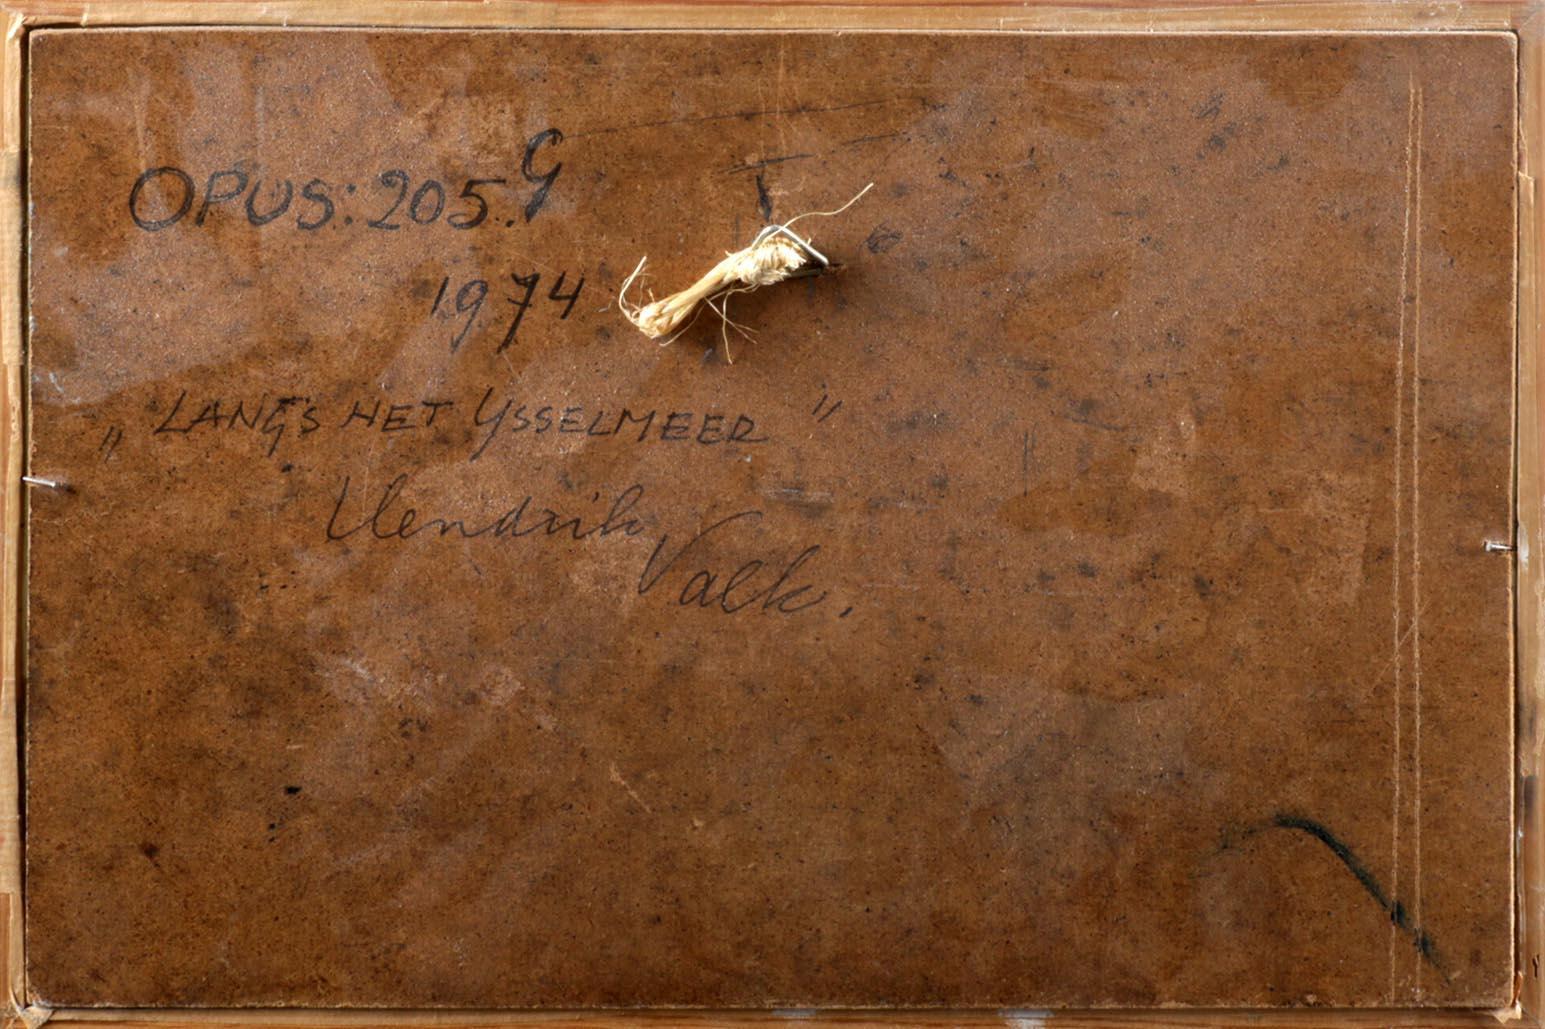 OPUS: 205.G
1974
„LANGS HET YSSELMEER"
Hendrik Valk.